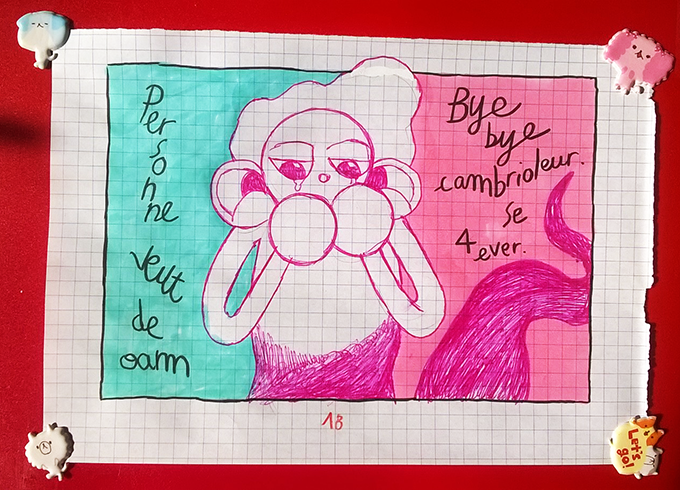 Personne
veut
de
oamn
Bye
bye
cambrioleur.
se
4
ever.
18
Let's
go!